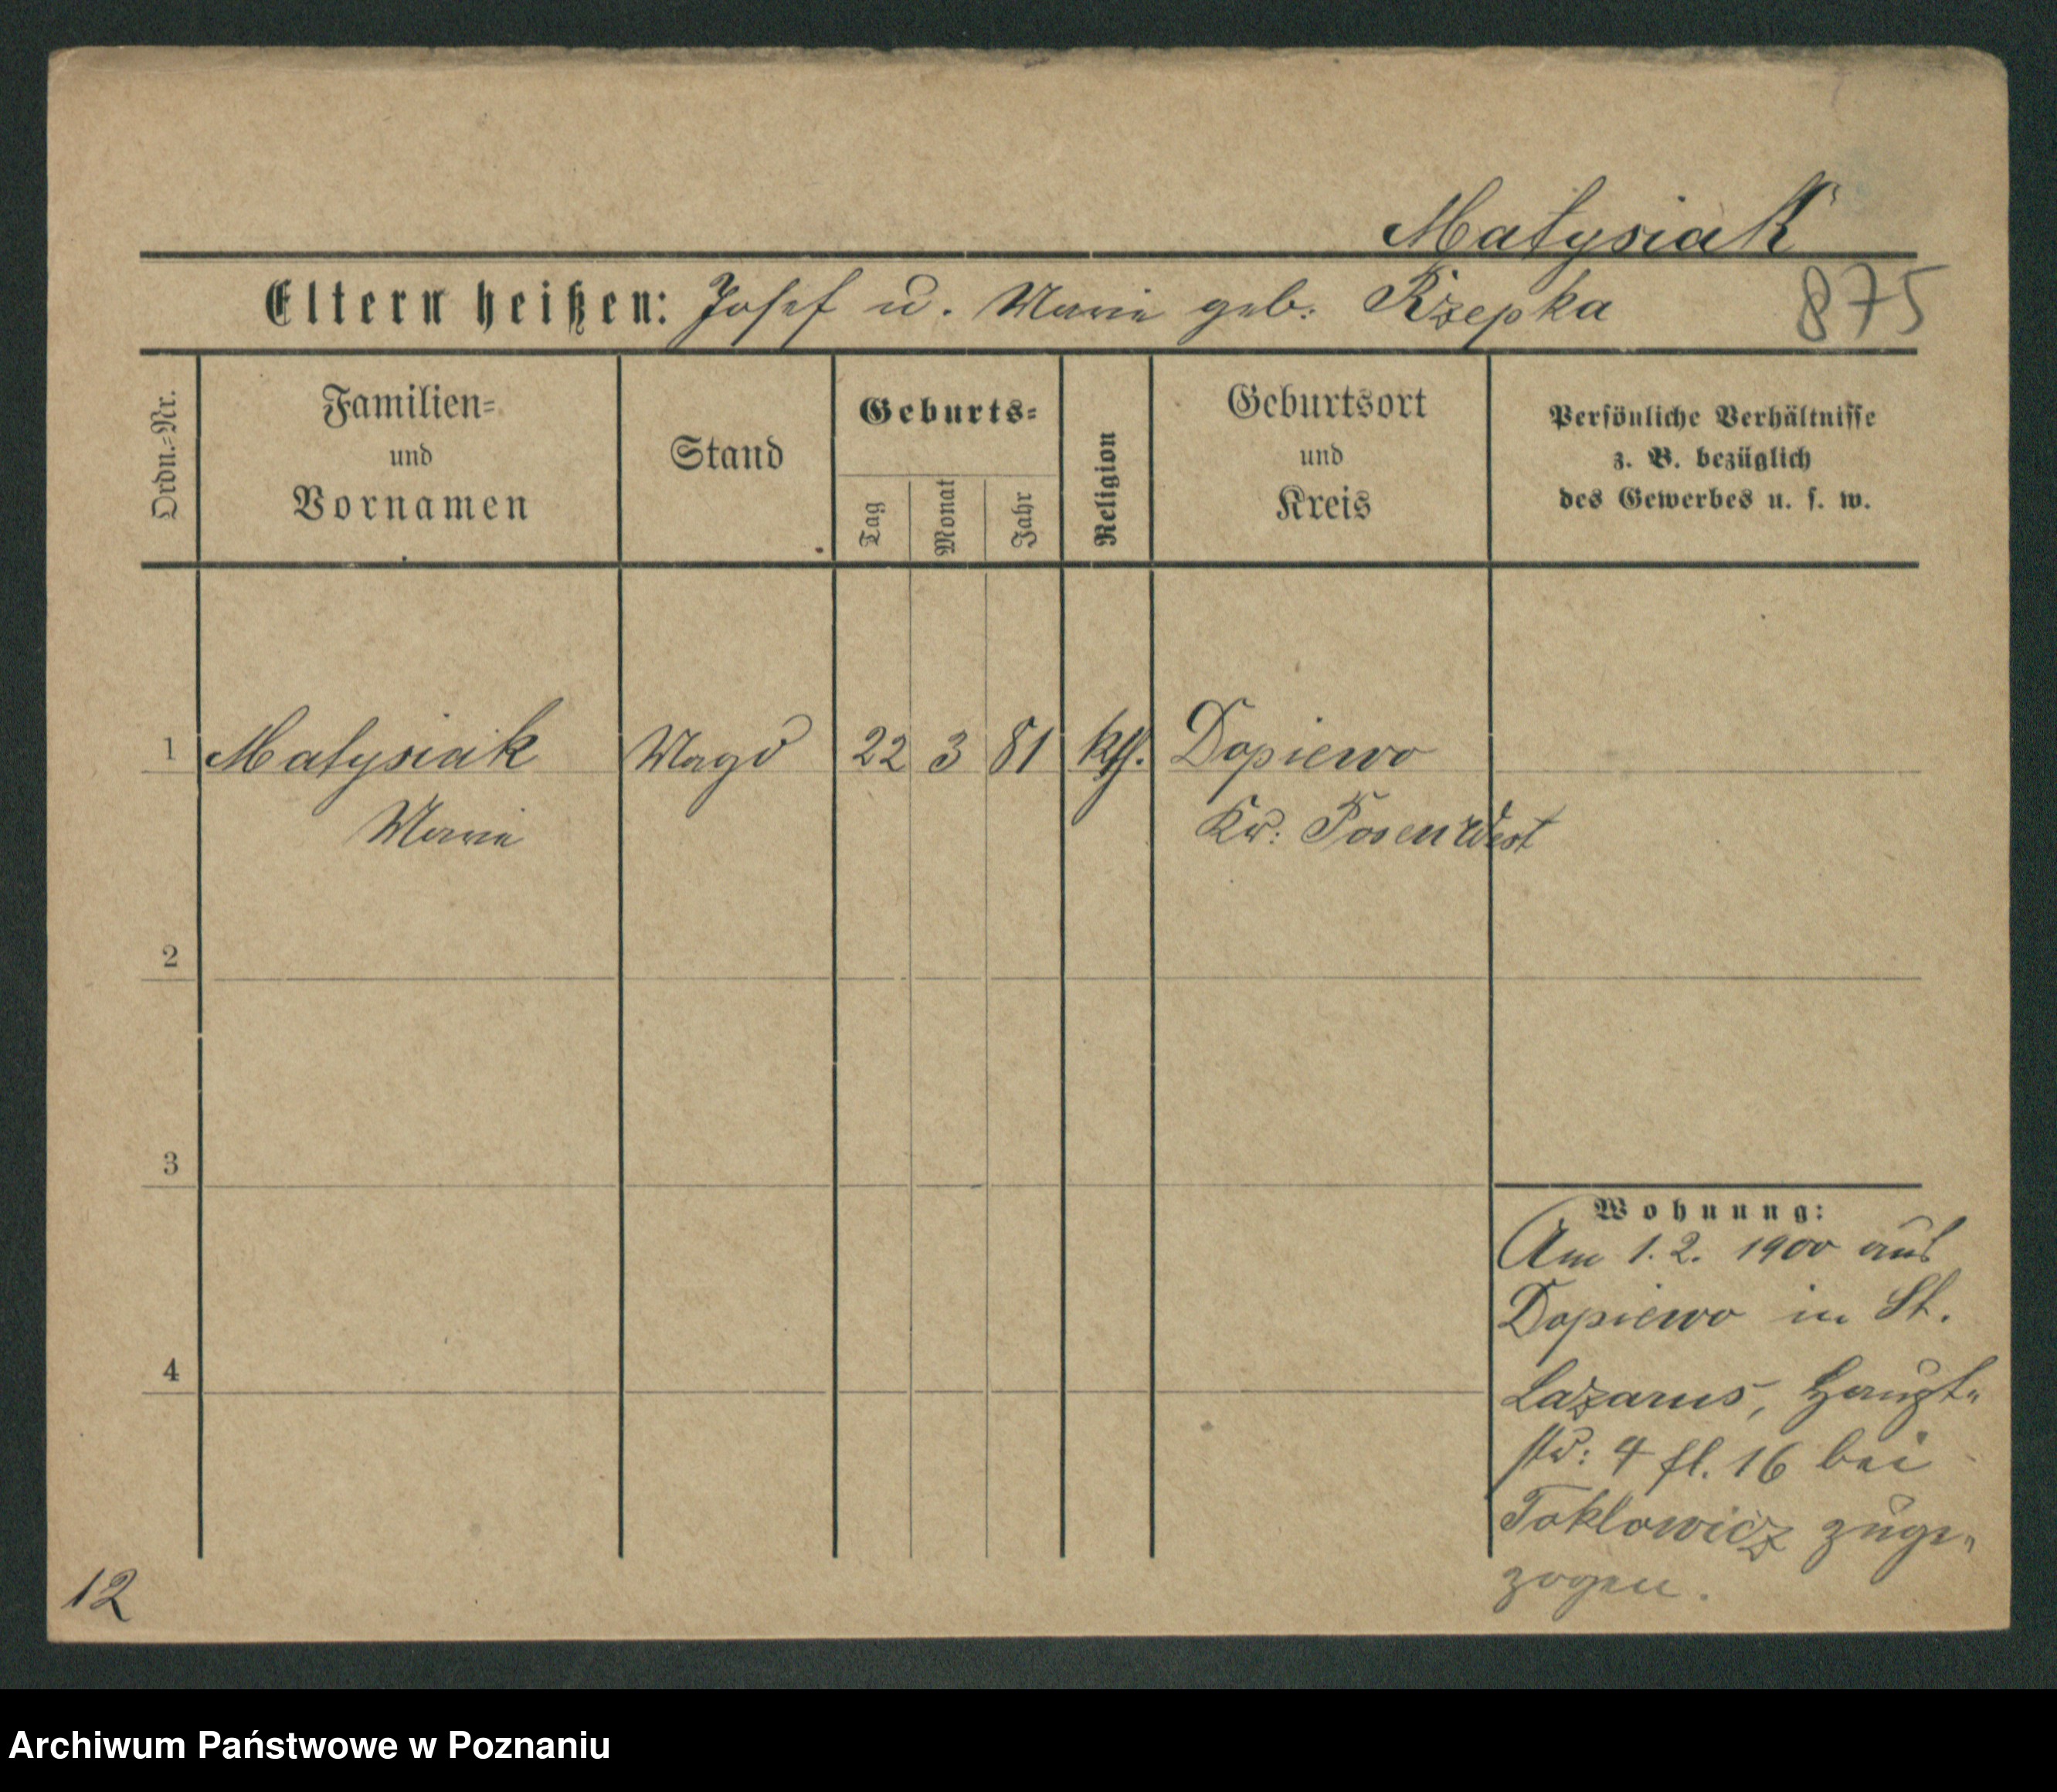 Matysiak
Eltern heißen: Josef u. Marie geb. Rzepka 875
Ordn.=Nr.
Familien=
und
Vornamen
Stand
Geburts=
Tag
Monat
Jahr
Religion
Geburtsort
und
Kreis
Persönliche Verhältnisse
z. B. bezüglich
des Gewerbes u. s. w.
1 Matysiak Magd 22 3 81 kth. Dopiewo
Marie Kr. Posen West
2
3
4
Wohnung:
Am 1.2. 1900 aus
Dopiewo in St.
Lazarus, Haupt-
str: 4 fl. 16 bei
Toklowicz zuge-
zogen.
12
Archiwum Państwowe w Poznaniu